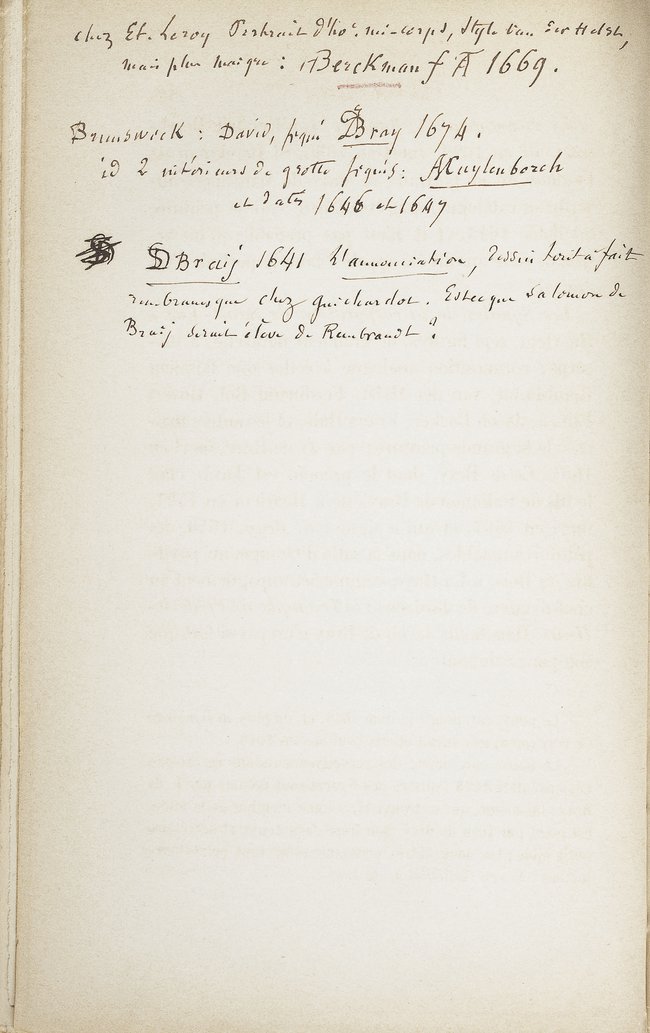 chez Et. Leroy Portrait d'hoe. mi-corps, style Van der Helst,
mais plus maigre : Berckman f A 1669.
Brunswick : David, signé DBray 1674.
id 2 intérieurs de grotte signés : ACuylenborch
et datés 1646 et 1647
SDBraij 1641 L'annonciation, dessin tout à fait
rembranesque chez guichardot. Estce que Salomon de
Braij serait élève de Rembrandt ?